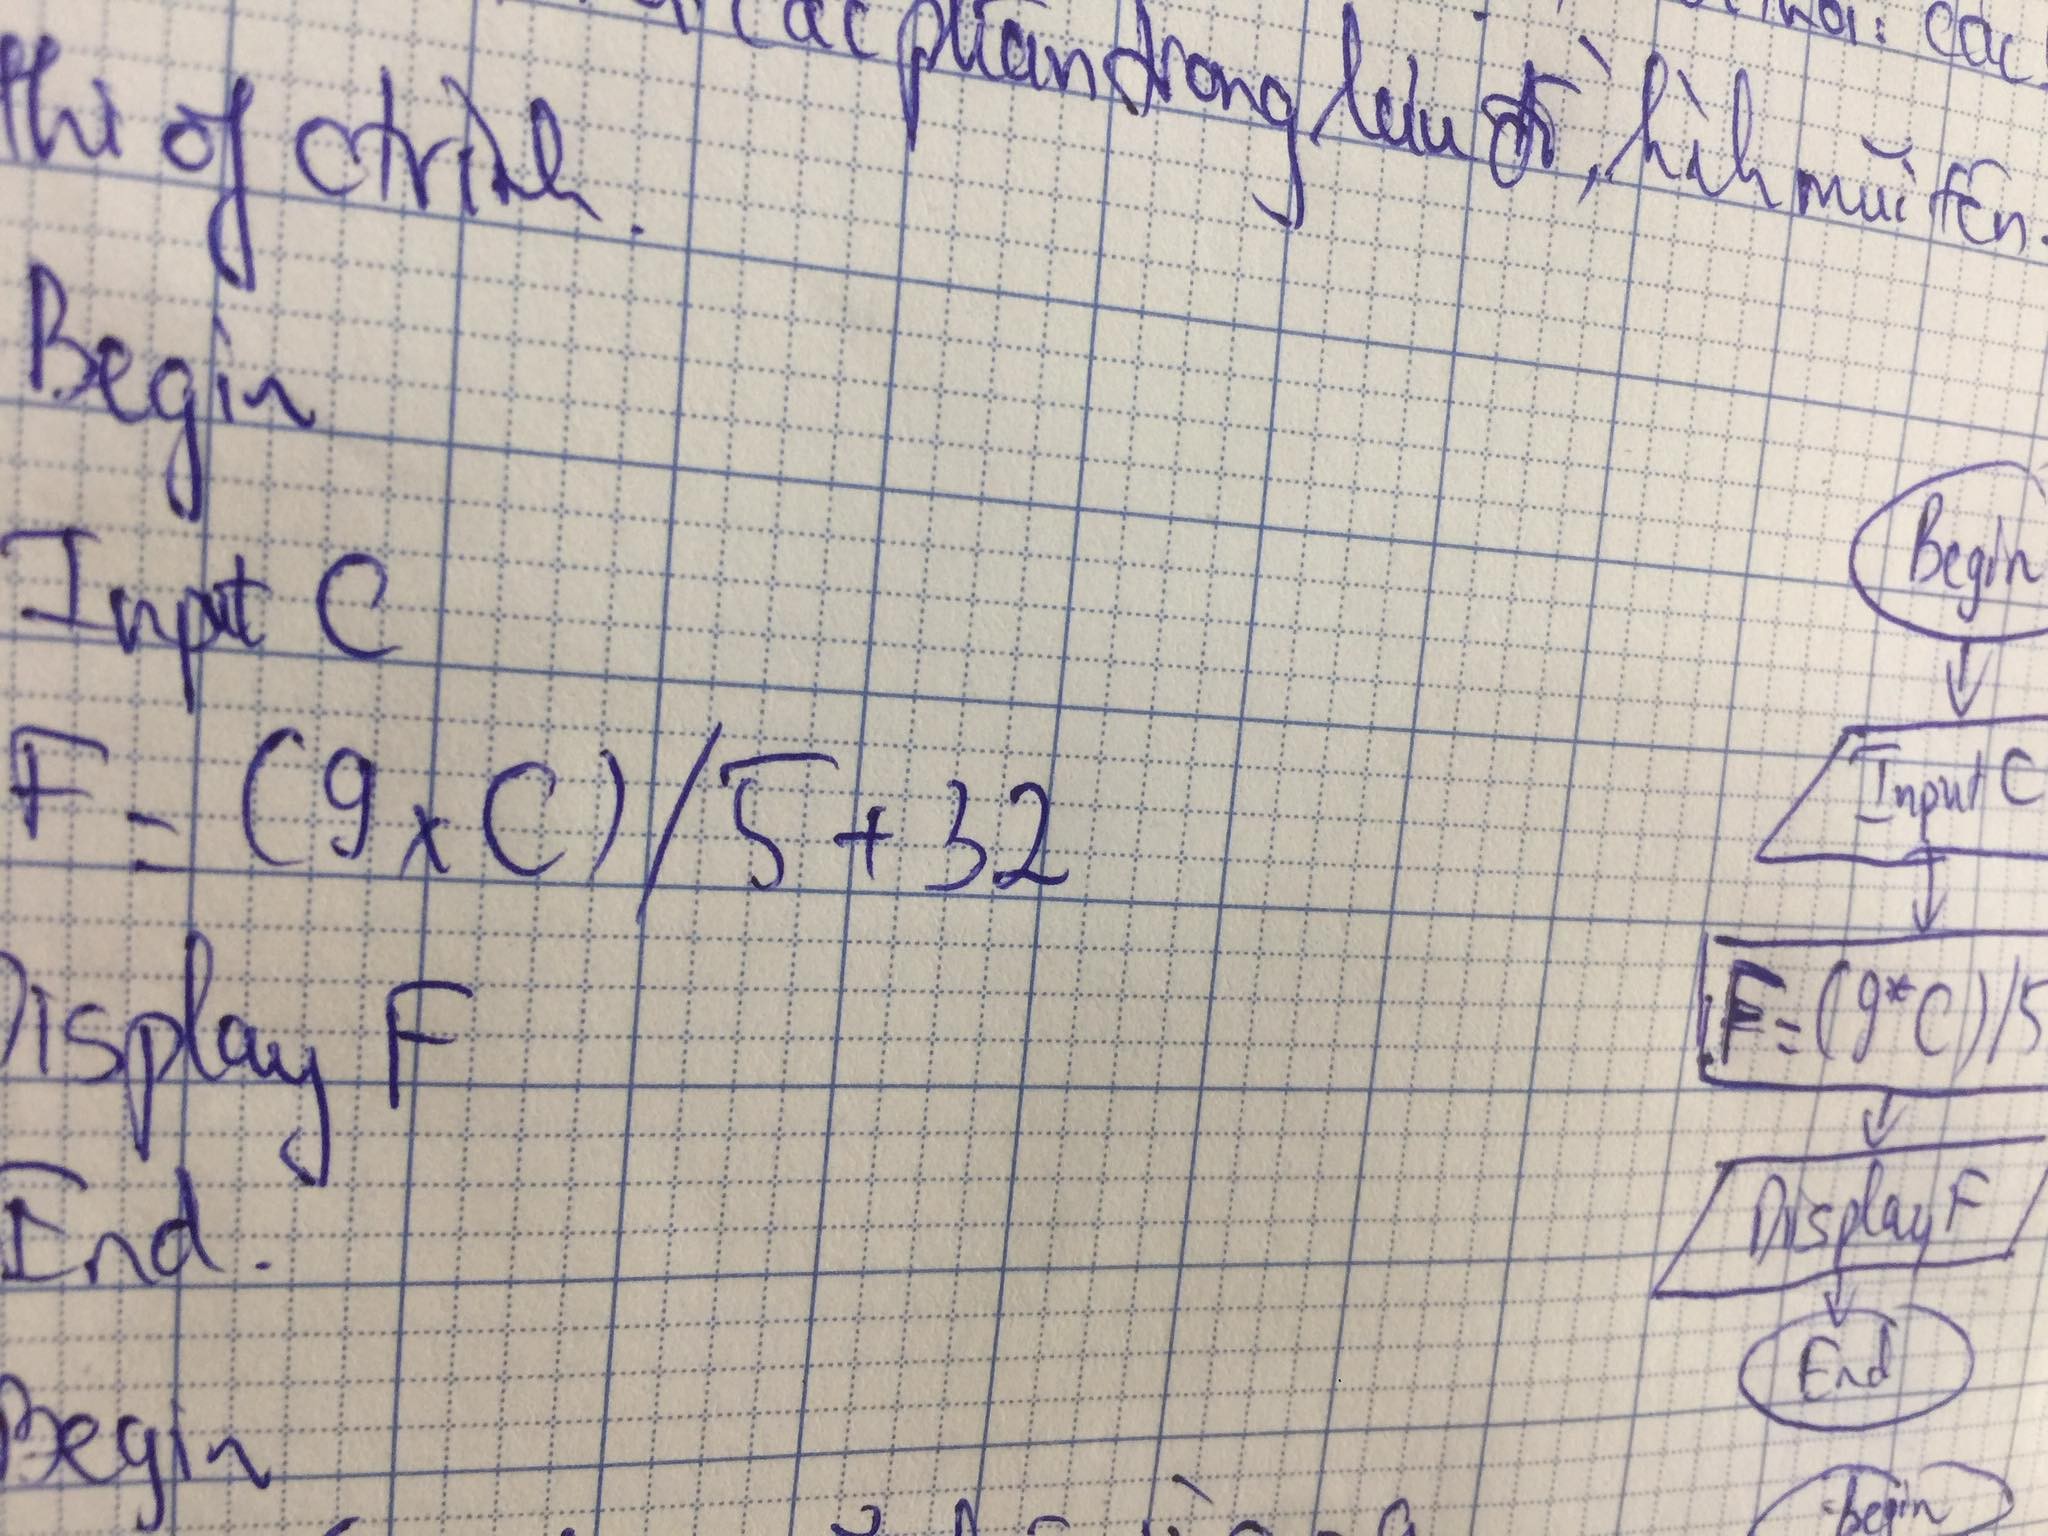 các phần trong lưu đồ, hình mũi tên.
các
thi of ctrình.
Begin
Input C
F = (9 x C) / 5 + 32
Display F
End.
Begin
Begin
Input C
F = (9*C)/5
Display F
End
begin